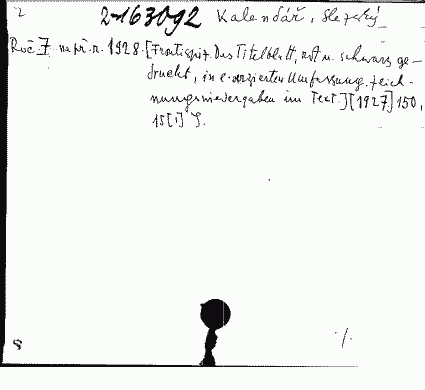 2 2-163092 Kalendář, Slezský
Roč. 7. na př. r. 1928. [Frontispiz. Das Titelblatt, rot u. schwarz ge-
druckt, in e. verzierten Umfassung. Zeich-
nungswiedergaben im Text.] [1927.] 150,
15[1] S.
8 ./.